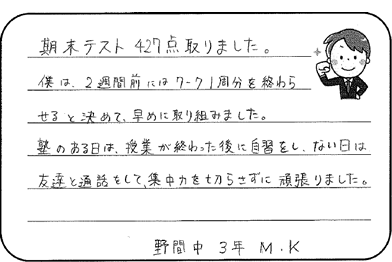 期末テスト 427点取りました。
僕は、2週間前にはワーク1周分を終わら
せると決めて、早めに取り組みました。
塾のある日は、授業が終わった後に自習をし、ない日は
友達と通話をして、集中力を切らさずに頑張りました。
野間中 3年 M・K